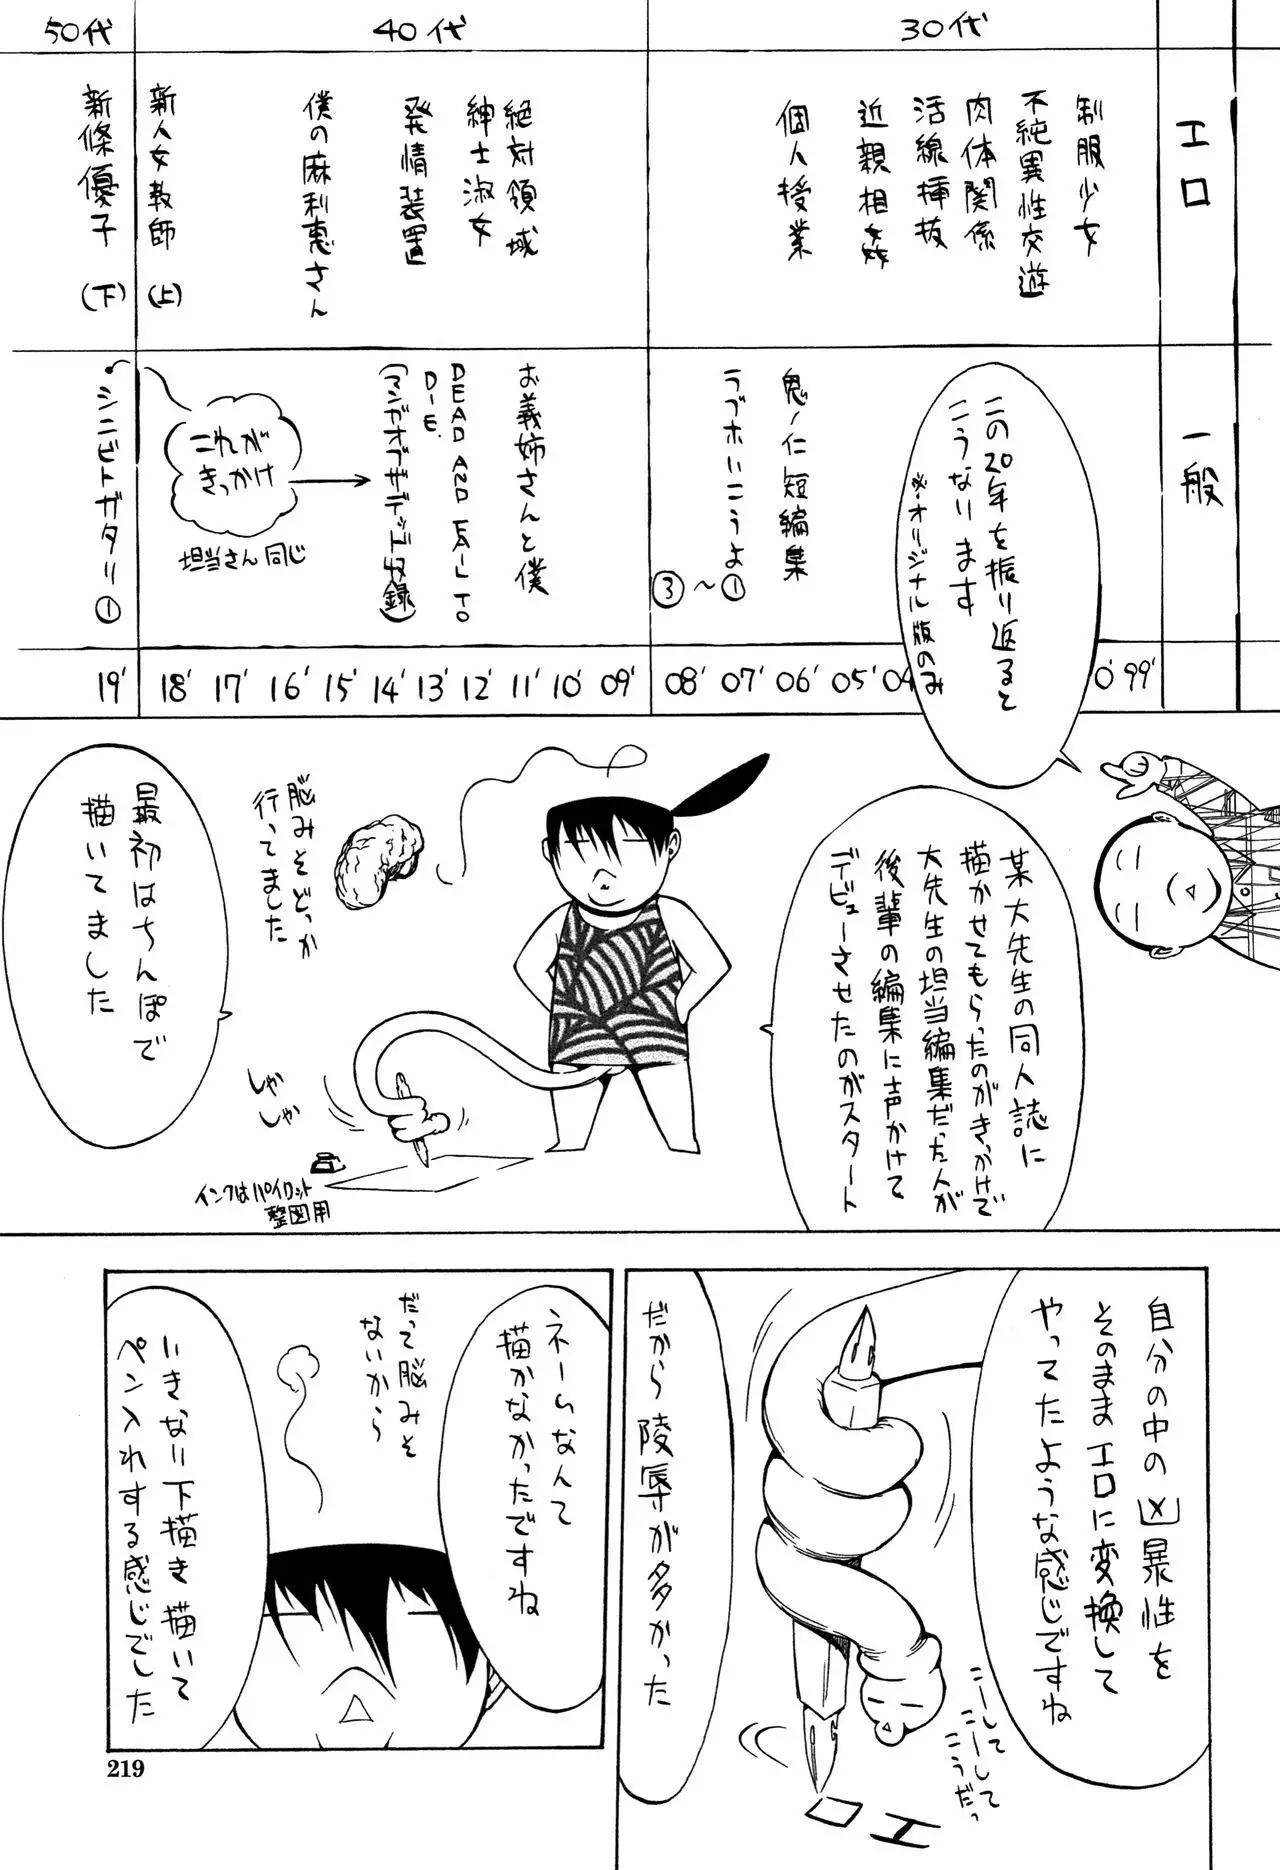 30代
40代
50代
エロ
制服少女
不純異性交遊
肉体関係
活線挿抜
近親相姦
個人授業
絶対領域
紳士淑女
発情装置
僕の麻利恵さん
新人女教師(上)
新條優子(下)
一般
鬼ノ仁短編集
ラブホいこうよ①
〜
③
お義姉さんと僕
DEAD AND FAIL TO
DIE.
(マンガオブザデッド収録)
これが
きっかけ
担当さん同じ
シニビトガタリ①
99'
0'
04
05'
06'
07'
08'
09'
10'
11'
12'
13'
14'
15'
16'
17'
18'
19'
この20年を振り返ると
こうなります
※オリジナル版のみ
某大先生の同人誌に
描かせてもらったのがきっかけで
大先生の担当編集だった人が
後輩の編集に声かけて
デビューさせたのがスタート
脳みそどっか
行ってました
最初はちんぽで
描いてました
しゃか
しゃか
インクはパイロット
製図用
自分の中の凶暴性を
そのままエロに変換して
やってたような感じですね
こーして
こーして
こうだっ
エロ
だから陵辱が多かった
ネームなんて
描かなかったですね
だって脳みそ
ないから
いきなり下描き描いて
ペン入れする感じでした
219